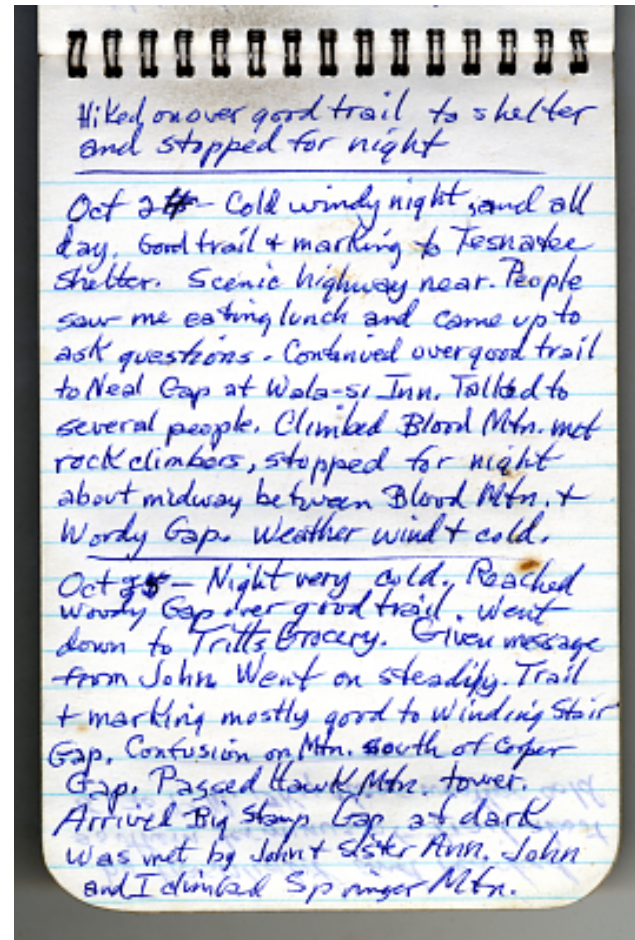 Hiked on over good trail to shelter
and stopped for night
Oct 24 - Cold windy night, and all
day. Good trail + marking to Tesnatee
Shelter. Scenic highway near. People
saw me eating lunch and came up to
ask questions. Continued over good trail
to Neal Gap at Wala-si Inn. Talked to
several people. Climbed Blood Mtn. met
rock climbers, stopped for night
about midway between Blood Mtn. +
Woody Gap. Weather wind + cold.
Oct 25 - Night very cold. Reached
Woody Gap over good trail. Went
down to Tritts Grocery. Given message
from John. Went on steadily. Trail
+ marking mostly good to Winding Stair
Gap. Confusion on Mtn. South of Cooper
Gap. Passed Hawk Mtn. tower.
Arrived Big Stamp Gap at dark
Was met by John + Sister Ann. John
and I climbed Springer Mtn.